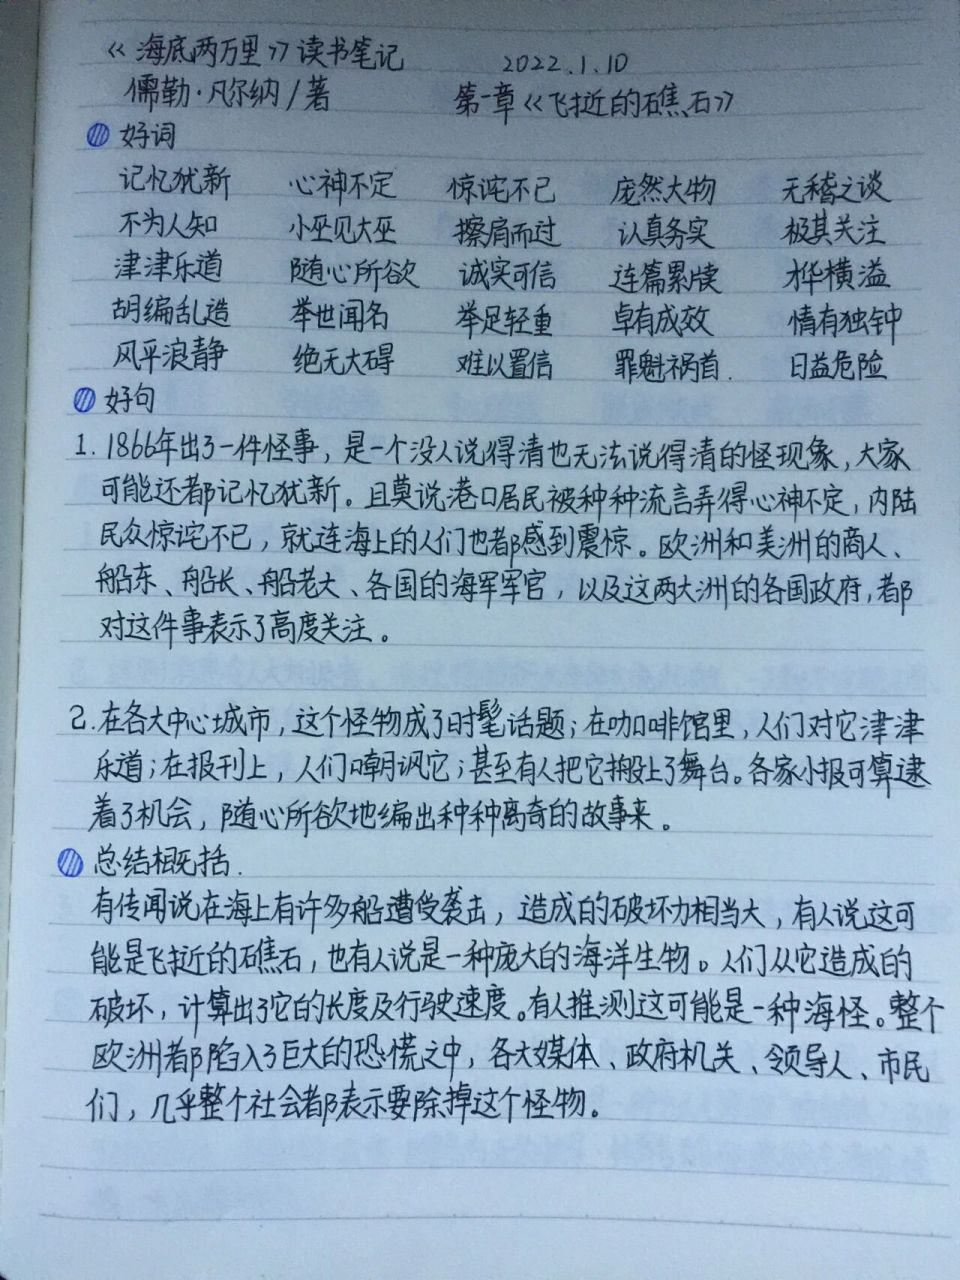 《海底两万里》读书笔记 2022.1.10
儒勒·凡尔纳/著 第一章《飞拉近的礁石》
好词
记忆犹新 心神不定 惊诧不已 庞然大物 无稽之谈
不为人知 小巫见大巫 擦肩而过 认真务实 极其关注
津津乐道 随心所欲 诚实可信 连篇累牍 才华横溢
胡编乱造 举世闻名 举足轻重 卓有成效 情有独钟
风平浪静 绝无大碍 难以置信 罪魁祸首. 日益危险
好句
1. 1866年出了一件怪事，是一个没人说得清也无法说得清的怪现象，大家
可能还都记忆犹新。且莫说港口居民被种种流言弄得心神不定，内陆
民众惊诧不已，就连海上的人们也都感到震惊。欧洲和美洲的商人、
船东、船长、船老大、各国的海军军官，以及这两大洲的各国政府，都
对这件事表示了高度关注。
2. 在各大中心城市，这个怪物成了时髦话题；在咖啡馆里，人们对它津津
乐道；在报刊上，人们嘲讽它；甚至有人把它搬上了舞台。各家小报可算逮
着了机会，随心所欲地编出种种离奇的故事来。
总结概括.
有传闻说在海上有许多船遭受袭击，造成的破坏力相当大，有人说这可
能是飞拉近的礁石，也有人说是一种庞大的海洋生物。人们从它造成的
破坏，计算出了它的长度及行驶速度。有人推测这可能是一种海怪。整个
欧洲都陷入了巨大的恐慌之中，各大媒体、政府机关、领导人、市民
们，几乎整个社会都表示要除掉这个怪物。